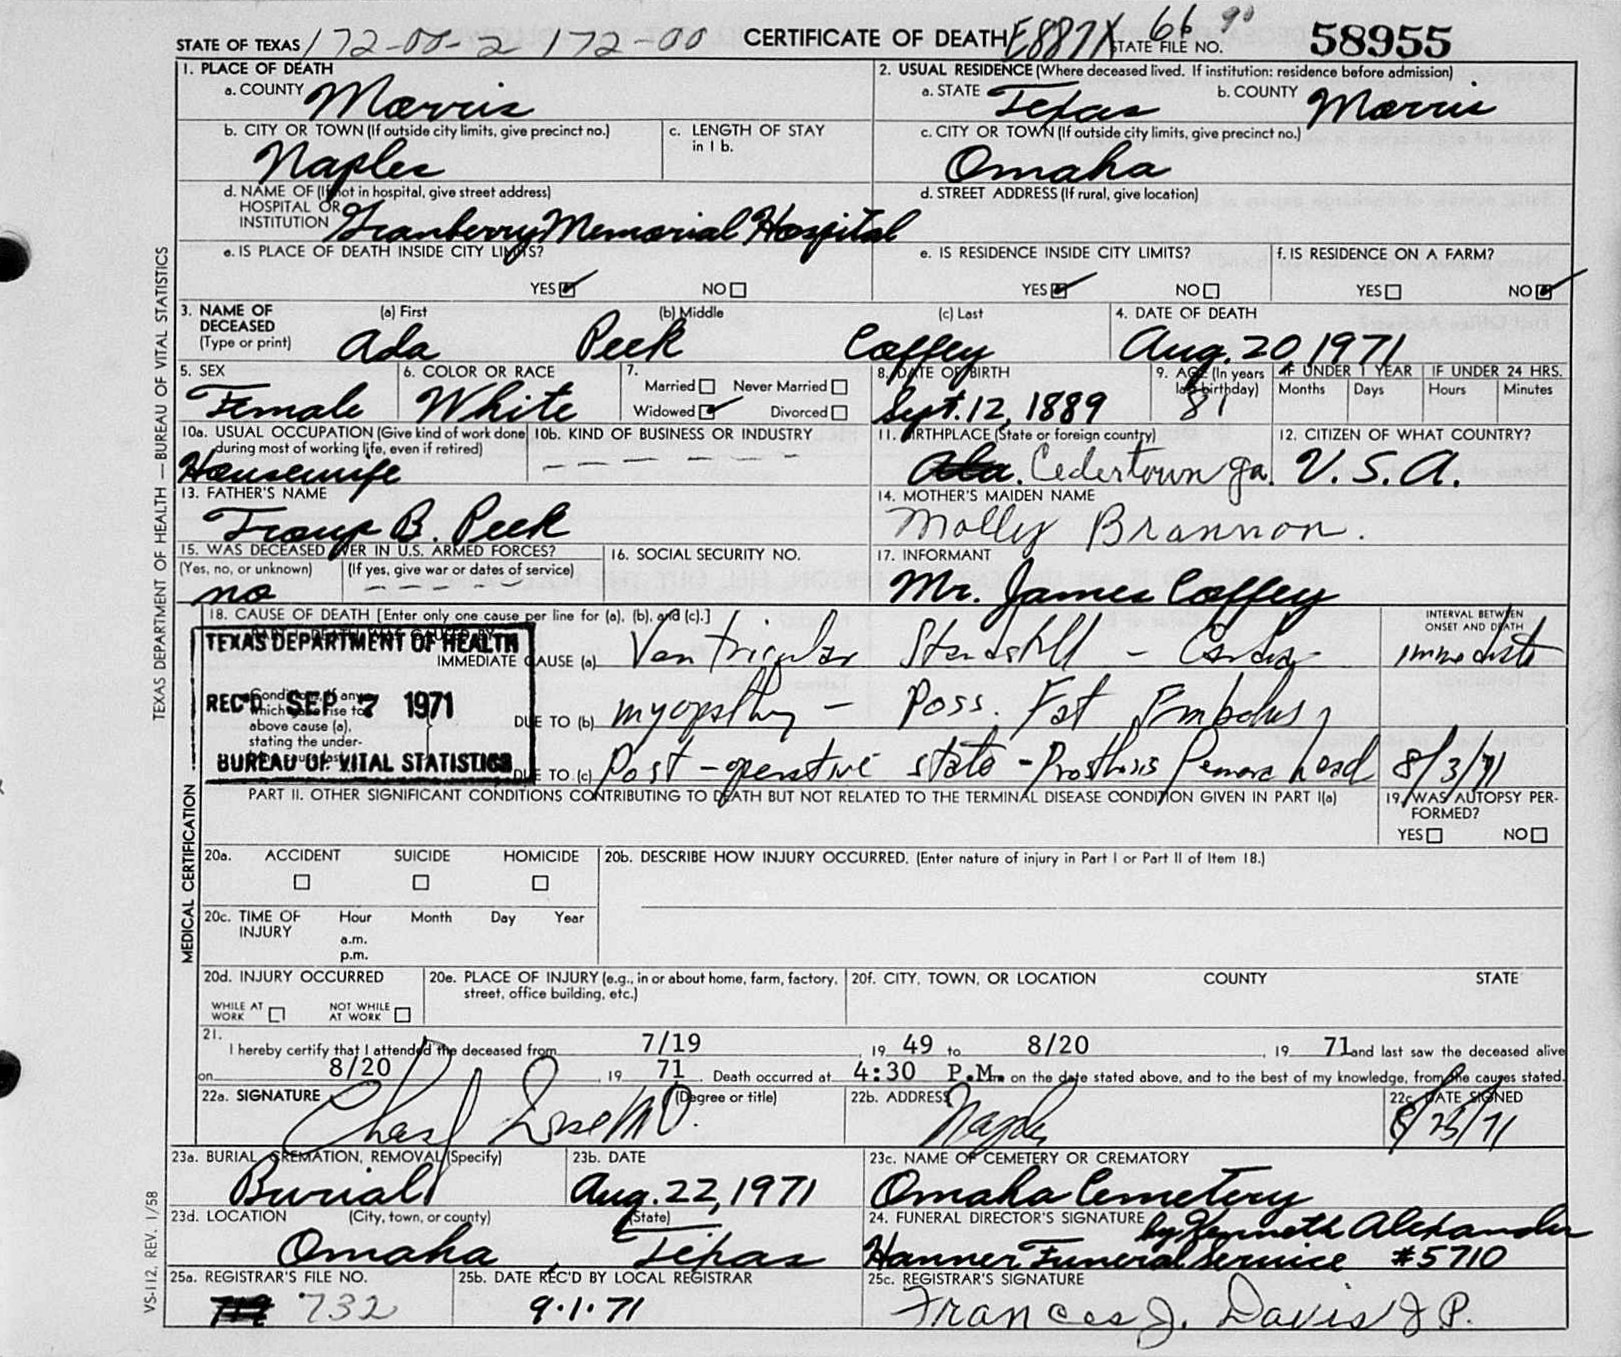 STATE OF TEXAS 172-00-2 172-00 CERTIFICATE OF DEATH E887X STATE FILE NO. 66 90 58955
1. PLACE OF DEATH
a. COUNTY Morris
2. USUAL RESIDENCE (Where deceased lived. If institution: residence before admission)
a. STATE Texas b. COUNTY Morris
b. CITY OR TOWN (If outside city limits, give precinct no.) Naples
c. LENGTH OF STAY in 1 b.
c. CITY OR TOWN (If outside city limits, give precinct no.) Omaha
d. NAME OF (If not in hospital, give street address)
HOSPITAL OR
INSTITUTION Granberry Memorial Hospital
d. STREET ADDRESS (If rural, give location)
e. IS PLACE OF DEATH INSIDE CITY LIMITS?
YES NO
e. IS RESIDENCE INSIDE CITY LIMITS?
YES NO
f. IS RESIDENCE ON A FARM?
YES NO
3. NAME OF DECEASED (Type or print)
(a) First (b) Middle (c) Last
Ada Peek Coffey
4. DATE OF DEATH
Aug. 20, 1971
5. SEX
Female
6. COLOR OR RACE
White
7. Married Never Married
Widowed Divorced
8. DATE OF BIRTH
Sept. 12, 1889
9. AGE (In years last birthday)
81
IF UNDER 1 YEAR
Months Days
IF UNDER 24 HRS.
Hours Minutes
10a. USUAL OCCUPATION (Give kind of work done during most of working life, even if retired)
Housewife
10b. KIND OF BUSINESS OR INDUSTRY
– – – – – – –
11. BIRTHPLACE (State or foreign country)
Ala. Cedertown Ga.
12. CITIZEN OF WHAT COUNTRY?
U.S.A.
13. FATHER'S NAME
Troup B. Peek
14. MOTHER'S MAIDEN NAME
Molly Brannon.
15. WAS DECEASED EVER IN U.S. ARMED FORCES?
(Yes, no, or unknown) (If yes, give war or dates of service)
no – – – – – –
16. SOCIAL SECURITY NO.
17. INFORMANT
Mr. James Coffey
18. CAUSE OF DEATH [Enter only one cause per line for (a), (b), and (c).]
PART I. DEATH WAS CAUSED BY
INTERVAL BETWEEN ONSET AND DEATH
TEXAS DEPARTMENT OF HEALTH
REC'D SEP 7 1971
BUREAU OF VITAL STATISTICS
IMMEDIATE CAUSE (a) Ventricular Standstill – Cardio immediate
Conditions, if any, which gave rise to above cause (a), stating the under-
DUE TO (b) myopathy – Poss. Fat Embolus,
DUE TO (c) Post-operative state – Prosthesis Femoral head 8/3/71
PART II. OTHER SIGNIFICANT CONDITIONS CONTRIBUTING TO DEATH BUT NOT RELATED TO THE TERMINAL DISEASE CONDITION GIVEN IN PART I(a)
19. WAS AUTOPSY PERFORMED?
YES NO
20a. ACCIDENT SUICIDE HOMICIDE
20b. DESCRIBE HOW INJURY OCCURRED. (Enter nature of injury in Part I or Part II of Item 18.)
20c. TIME OF INJURY Hour Month Day Year
a.m.
p.m.
20d. INJURY OCCURRED
WHILE AT WORK NOT WHILE AT WORK
20e. PLACE OF INJURY (e.g., in or about home, farm, factory, street, office building, etc.)
20f. CITY, TOWN, OR LOCATION COUNTY STATE
21. I hereby certify that I attended the deceased from 7/19, 19 49 to 8/20, 19 71 and last saw the deceased alive
on 8/20, 19 71. Death occurred at 4:30 P.M. on the date stated above, and to the best of my knowledge, from the causes stated.
22a. SIGNATURE (Degree or title)
Chas J Wise MD.
22b. ADDRESS
Naples
22c. DATE SIGNED
8/25/71
23a. BURIAL, CREMATION, REMOVAL (Specify)
Burial
23b. DATE
Aug. 22, 1971
23c. NAME OF CEMETERY OR CREMATORY
Omaha Cemetery
23d. LOCATION (City, town, or county) (State)
Omaha, Texas
24. FUNERAL DIRECTOR'S SIGNATURE by Kenneth Alexander
Hanner Funeral Service #5710
25a. REGISTRAR'S FILE NO.
732
25b. DATE REC'D BY LOCAL REGISTRAR
9-1-71
25c. REGISTRAR'S SIGNATURE
Frances J. Davis J P.
TEXAS DEPARTMENT OF HEALTH — BUREAU OF VITAL STATISTICS
MEDICAL CERTIFICATION
VS-112, REV. 1/58